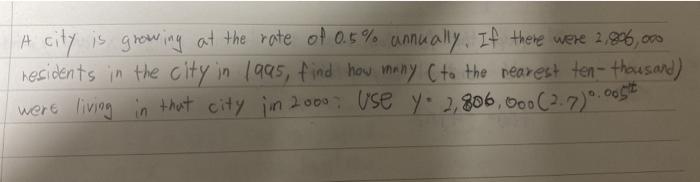 A city is growing at the rate of 0.5% annually. If there were 2,806,000
residents in the city in 1995, find how many (to the nearest ten-thousand)
were living in that city in 2000: Use y = 2,806,000(2.7)^0.005t